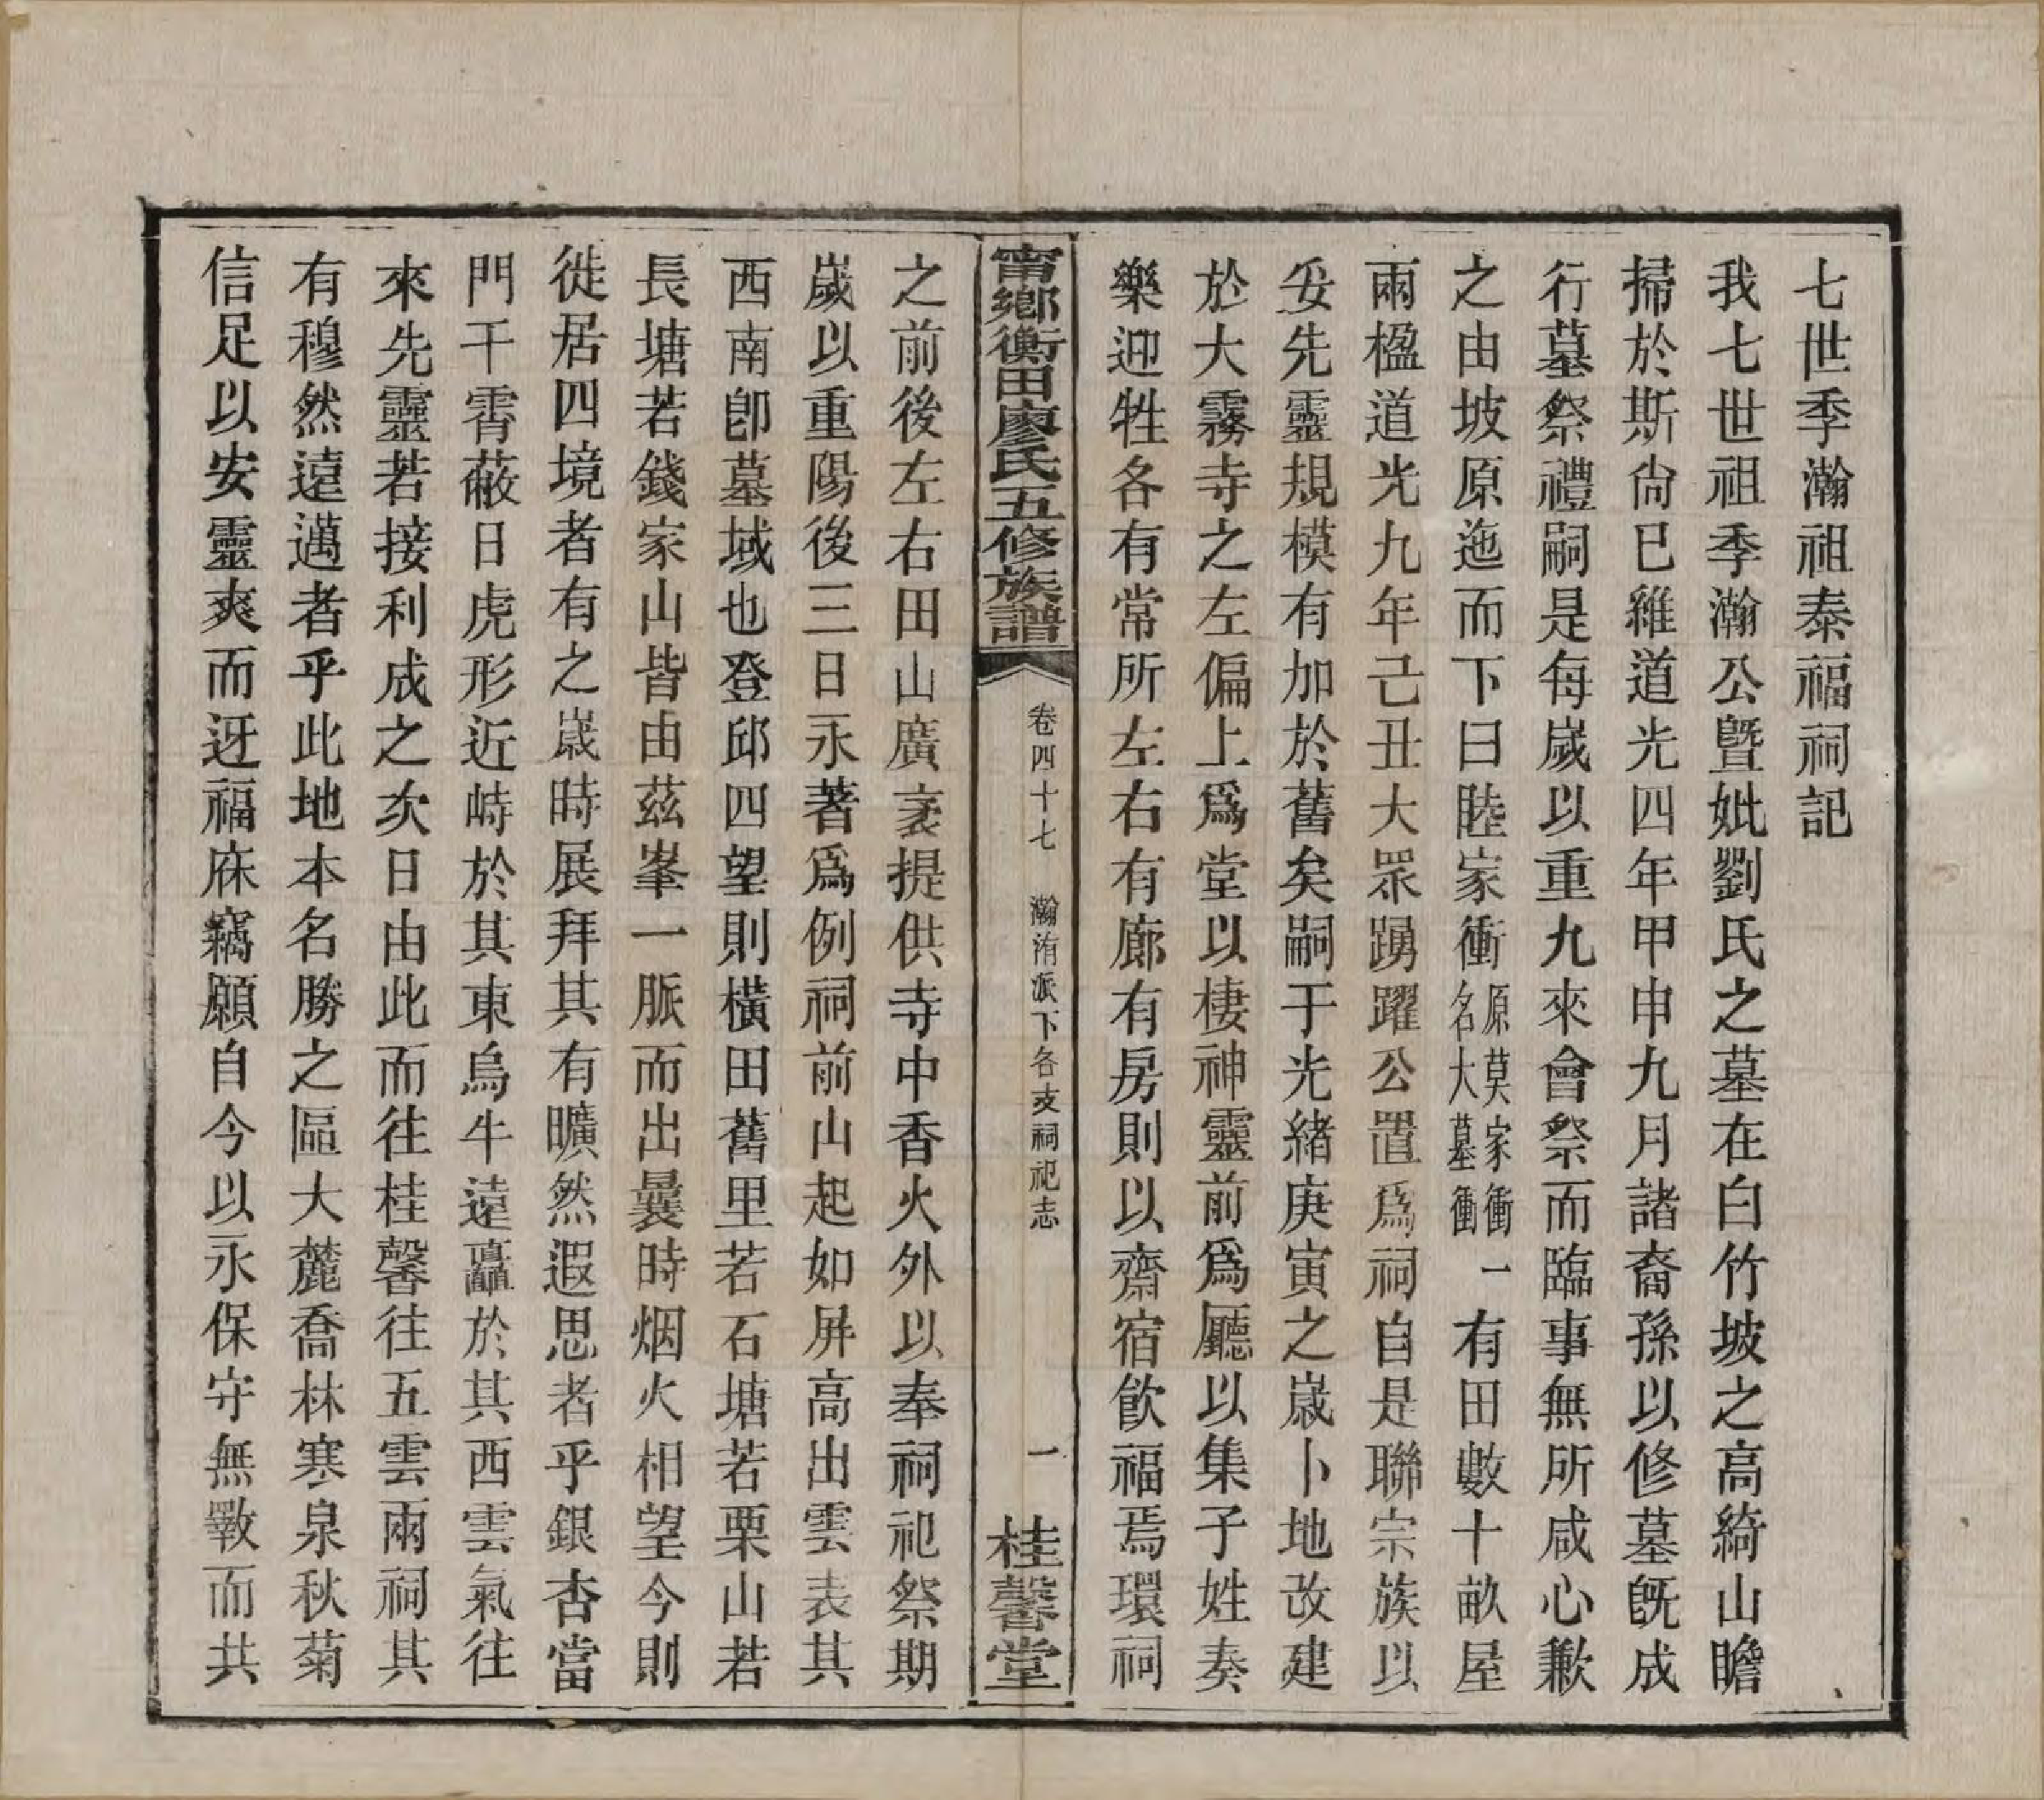 七世季瀚祖泰福祠記
我七世祖季瀚公曁妣劉氏之墓在白竹坡之高綺山瞻
掃於斯尙巳維道光四年甲申九月諸裔孫以修墓旣成
行墓祭禮嗣是每歲以重九來會祭而臨事無所咸心歉
之由坡原迤而下曰睦家衝原莫家衝名大墓衝一有田數十畝屋
兩楹道光九年己丑大眾踴躍公置爲祠自是聯宗族以
妥先靈規模有加於舊矣嗣于光緒庚寅之歲卜地改建
於大霧寺之左偏上爲堂以棲神靈前爲廳以集子姓奏
樂迎牲各有常所左右有廊有房則以齋宿飮福焉環祠
甯鄉衡田廖氏五修族譜 卷四十七 瀚洧派下各支祠祀志 一 桂馨堂
之前後左右田山廣袤提供寺中香火外以奉祠祀祭期
歲以重陽後三日永著爲例祠前山起如屏高出雲表其
西南卽墓域也登邱四望則橫田舊里若石塘若栗山若
長塘若錢家山皆由茲峯一脈而出曩時烟火相望今則
徙居四境者有之歲時展拜其有曠然遐思者乎銀杏當
門干霄蔽日虎形近峙於其東烏牛遠矗於其西雲氣往
來先靈若接利成之次日由此而往桂馨往五雲兩祠其
有穆然遠邁者乎此地本名勝之區大麓喬林寒泉秋菊
信足以安靈爽而迓福庥竊願自今以永保守無斁而共